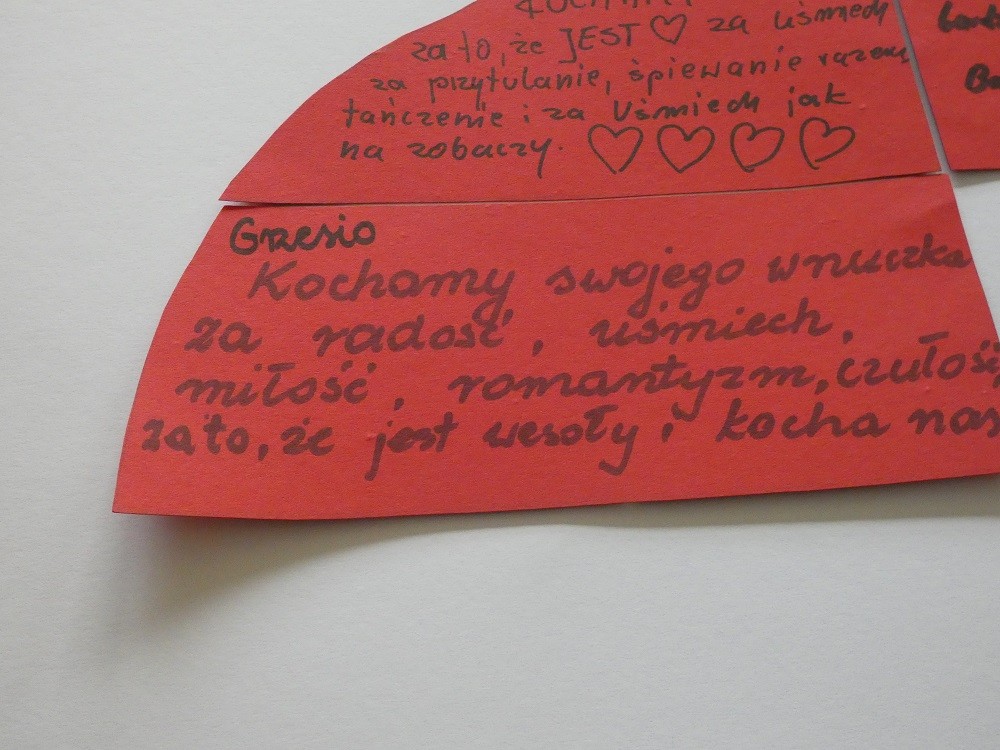 za to, że JEST ♡ za uśmiech
za przytulanie, śpiewanie razem
tańczenie i za Uśmiech jak
na zobaczy. ♡ ♡ ♡ ♡
Grzesio
Kochamy swojego wnuczka
za radość, uśmiech,
miłość, romantyzm, czułość,
za to, że jest wesoły i kocha nas